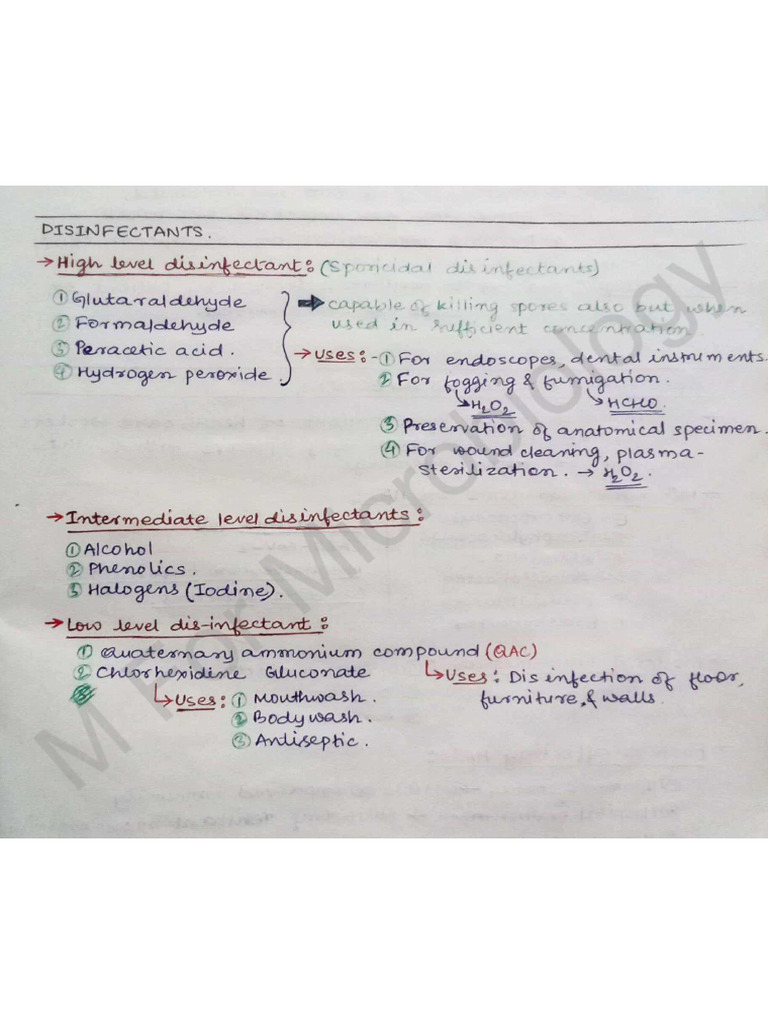 DISINFECTANTS.
→ High level disinfectant: (Sporicidal disinfectants)
① Glutaraldehyde
② Formaldehyde
③ Peracetic acid.
④ Hydrogen peroxide.
➡ capable of killing spores also but when
used in sufficient concentration
→ Uses:- ① For endoscopes, dental instruments.
② For fogging & fumigation.
↳ H₂O₂ ↳ HCHO.
③ Preservation of anatomical specimen.
④ For wound cleaning, plasma-
sterilization. → H₂O₂.
→ Intermediate level disinfectants:
① Alcohol
② Phenolics.
③ Halogens (Iodine).
→ Low level dis-infectant:
① Quaternary ammonium compound (QAC)
↳ Uses: Disinfection of floor,
furniture, & walls.
② Chlorhexidine Gluconate
↳ Uses: ① Mouthwash.
② Body wash.
③ Antiseptic.
M For Microbiology